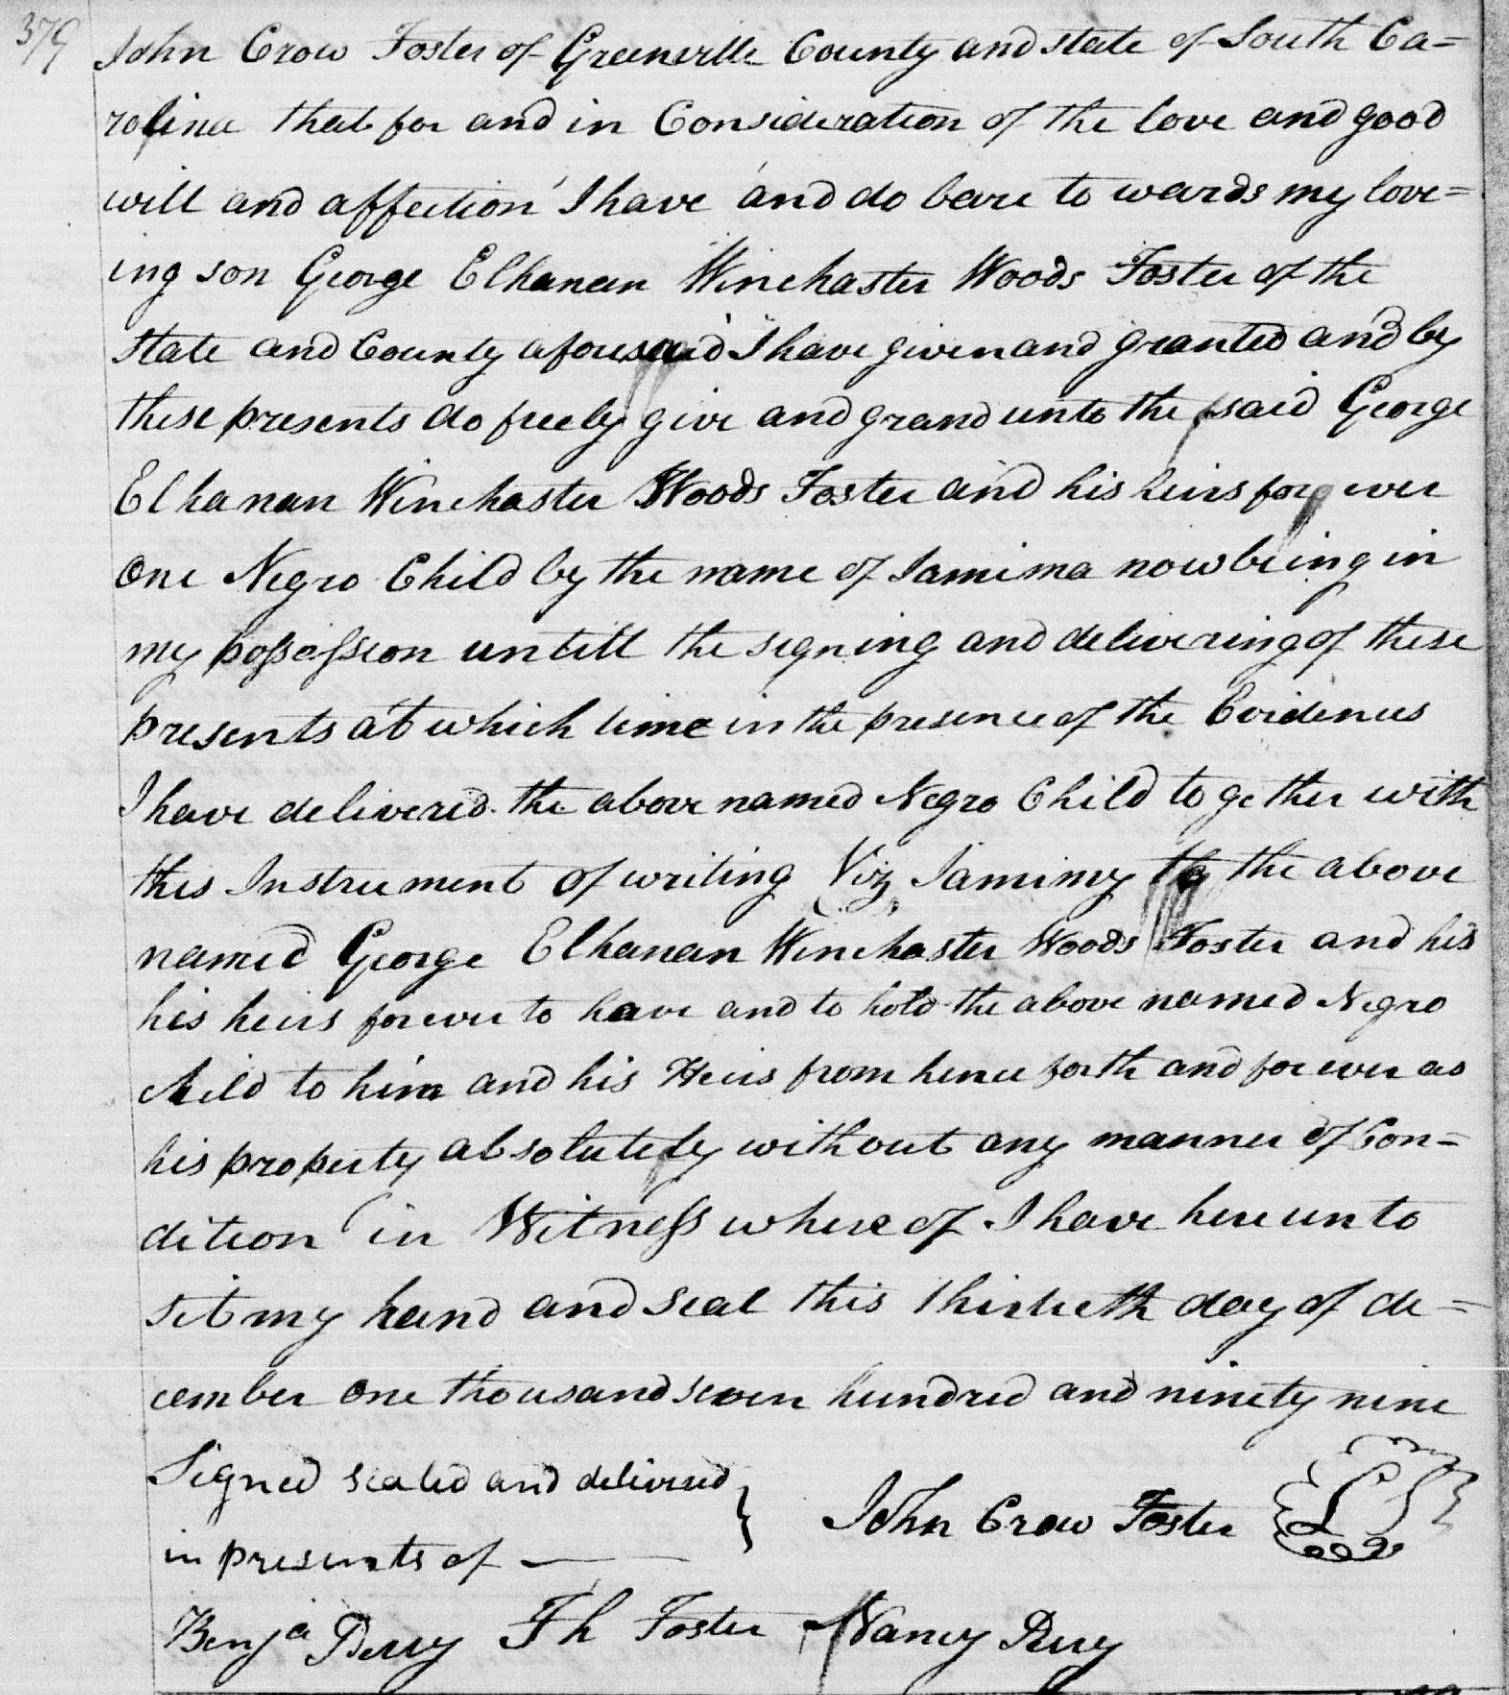 379
John Crow Foster of Greenville County and state of South Ca=
rolina that for and in Consideration of the love and good
will and affection I have and do bare to wards my love=
ing son George Elhanan Winchaster Woods Foster of the
state and County aforesaid I have given and granted and by
these presents do freely give and grand unto the said George
Elhanan Winchaster Woods Foster and his heirs for ever
One Negro Child by the name of Jamima now being in
my possession untill the signing and delivering of these
presents at which time in the presence of the Evidences
I have delivered the above named Negro Child to gether with
this Instrument of writing Viz Jamimy to the above
named George Elhanan Winchaster Woods Foster and his
his heirs forever to have and to hold the above named Negro
Child to him and his Heirs from hence forth and for ever as
his property absolutely without any manner of Con=
dition in Witness where of I have here unto
set my hand and seal this thirtieth day of de=
cember one thousand seven hundred and ninety nine
Signed sealed and delivered
in presents of
John Crow Foster LS
Benja Perry Th Foster Nancy Perry